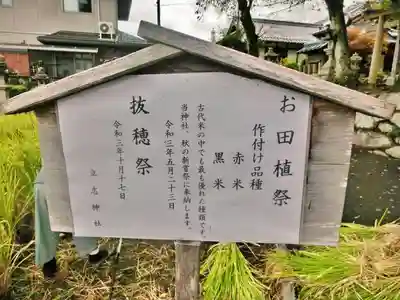 お田植祭
作付け品種
赤米
黒米
古代米の中でも最も優れた種類です。
当神社、秋の新嘗祭に奉納します。
令和三年五月二十三日
抜穂祭
令和三年十月十七日
神社